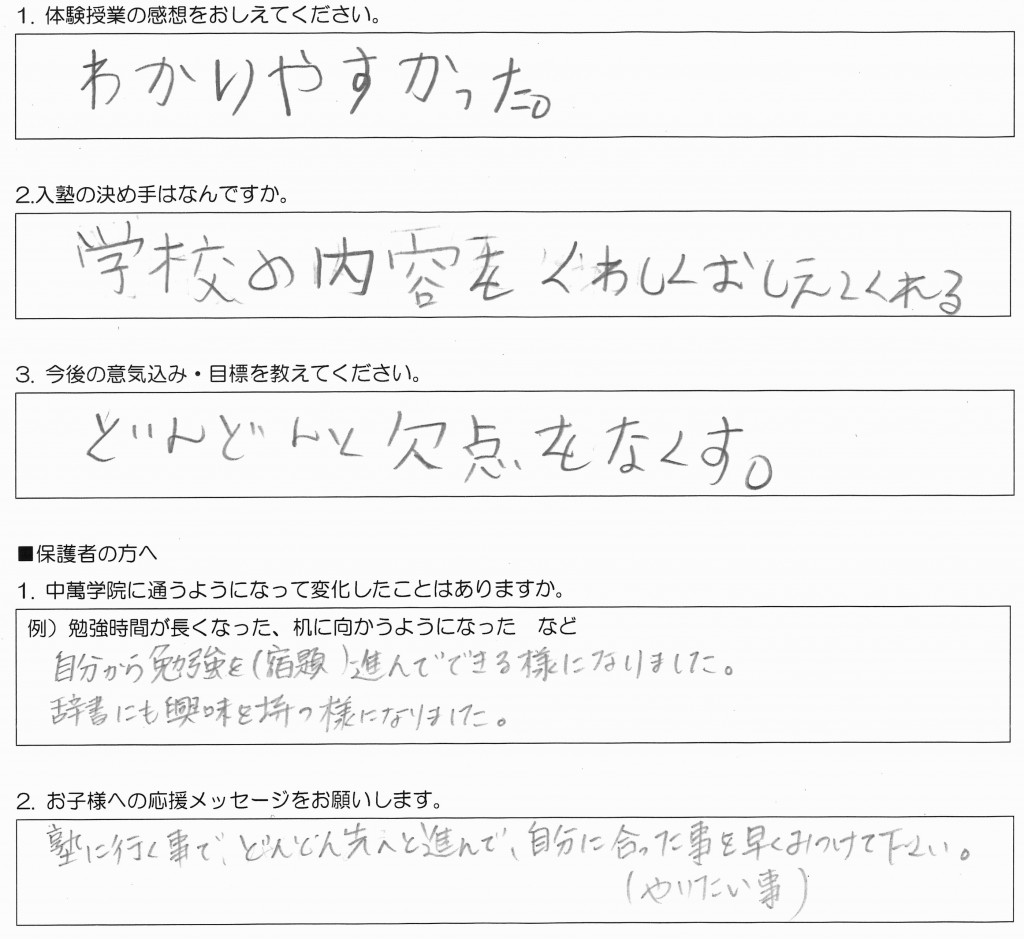 1. 体験授業の感想をおしえてください。
わかりやすかった。
2.入塾の決め手はなんですか。
学校の内容をくわしくおしえてくれる
3. 今後の意気込み・目標を教えてください。
どんどんと欠点をなくす。
■保護者の方へ
1. 中萬学院に通うようになって変化したことはありますか。
例）勉強時間が長くなった、机に向かうようになった　など
自分から勉強を(宿題)進んでできる様になりました。
辞書にも興味を持つ様になりました。
2. お子様への応援メッセージをお願いします。
塾に行く事で、どんどん先へと進んで、自分に合った事を早くみつけて下さい。
(やりたい事)